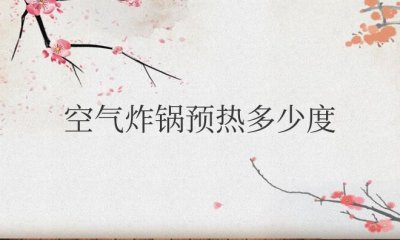 空气炸锅预热多少度